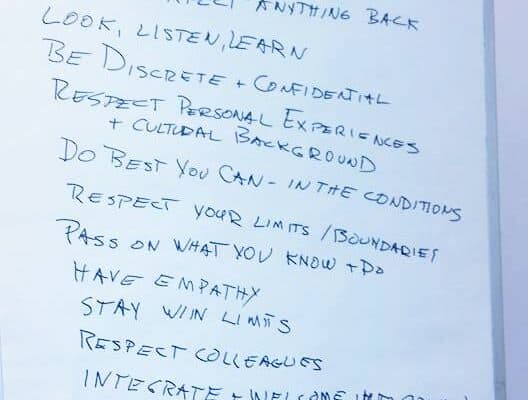 ANYTHING BACK
LOOK, LISTEN, LEARN
BE DISCRETE + CONFIDENTIAL
RESPECT PERSONAL EXPERIENCES
+ CULTURAL BACKGROUND
DO BEST YOU CAN - IN THE CONDITIONS
RESPECT YOUR LIMITS / BOUNDARIES
PASS ON WHAT YOU KNOW + DO
HAVE EMPATHY
STAY W/IN LIMITS
RESPECT COLLEAGUES
INTEGRATE + WELCOME